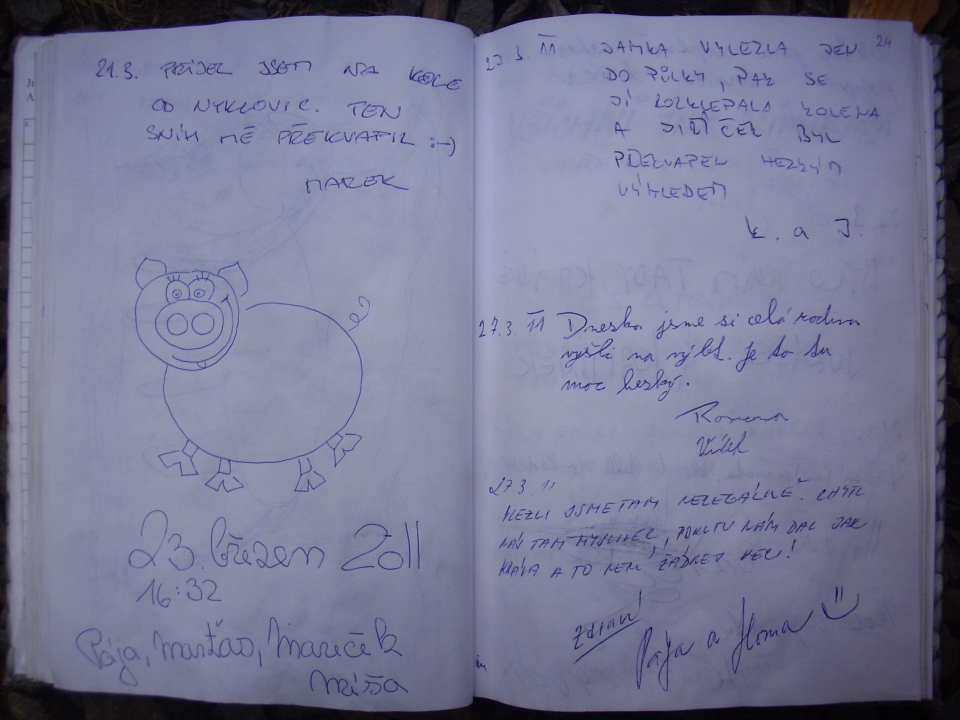 21.3. PŘIJEL JSEM NA KOLE
OD NYKLOVIC. TEN
SNÍH MĚ PŘEKVAPIL :-)
MAREK
23. březen 2011
16:32
Pája, Marťas, Mareček
Míša
24
27.3. 11 JAMKA VYLEZLA JEN
DO PŮLKY, PAK SE
JÍ ROZKLEPALA KOLENA
A JIŘÍČEK BYL
PŘEKVAPEN HEZKÝM
VÝHLEDEM
K. a J.
27.3 11 Dneska jsme si celá rodina
vyšli na výlet. Je to tu
moc hezký.
27.3. 11
VLEZLI JSME TAM NELEGÁLNĚ. CHYTL
NÁS TAM MYSLIVEC, POKUTU NÁM DAL JAK
KRÁVA A TO NENÍ ŽÁDNEJ KEC!
Zdraví
Pája a Homa